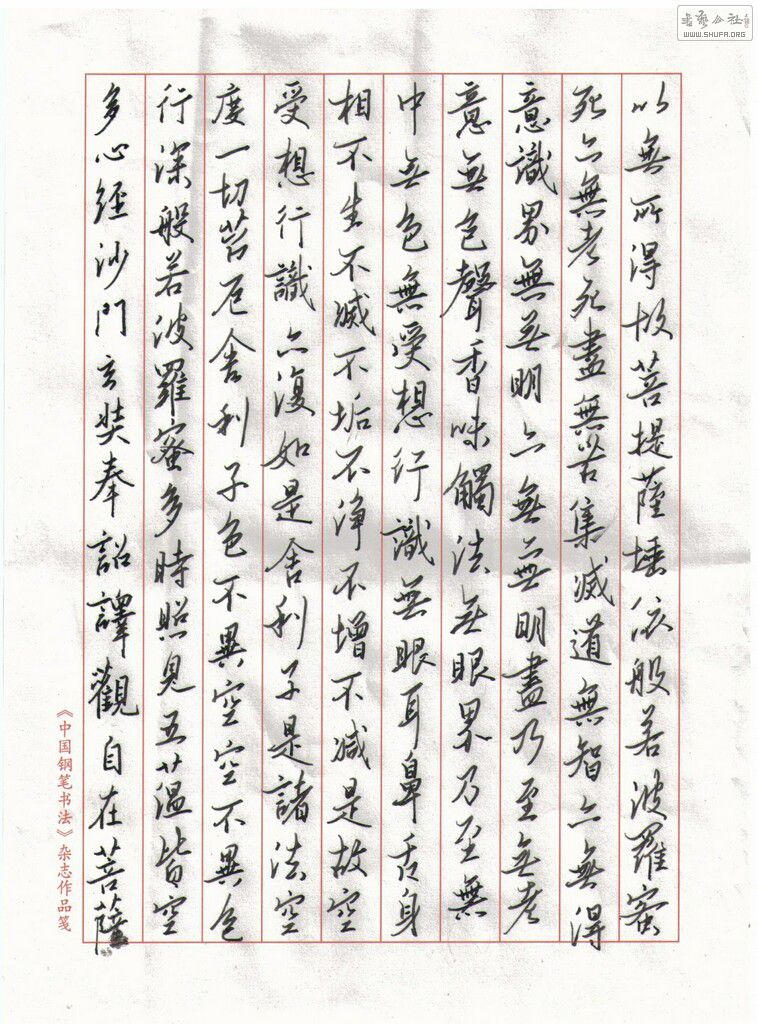 多心經沙門玄奘奉詔譯觀自在菩薩
行深般若波羅蜜多時照見五蘊皆空
度一切苦厄舍利子色不異空空不異色
受想行識亦復如是舍利子是諸法空
相不生不滅不垢不淨不增不減是故空
中無色無受想行識無眼耳鼻舌身
意無色聲香味觸法無眼界乃至無
意識界無無明亦無無明盡乃至無老
死亦無老死盡無苦集滅道無智亦無得
以無所得故菩提薩埵依般若波羅蜜
《中国钢笔书法》杂志作品笺
書藝公社
WWW.SHUFA.ORG